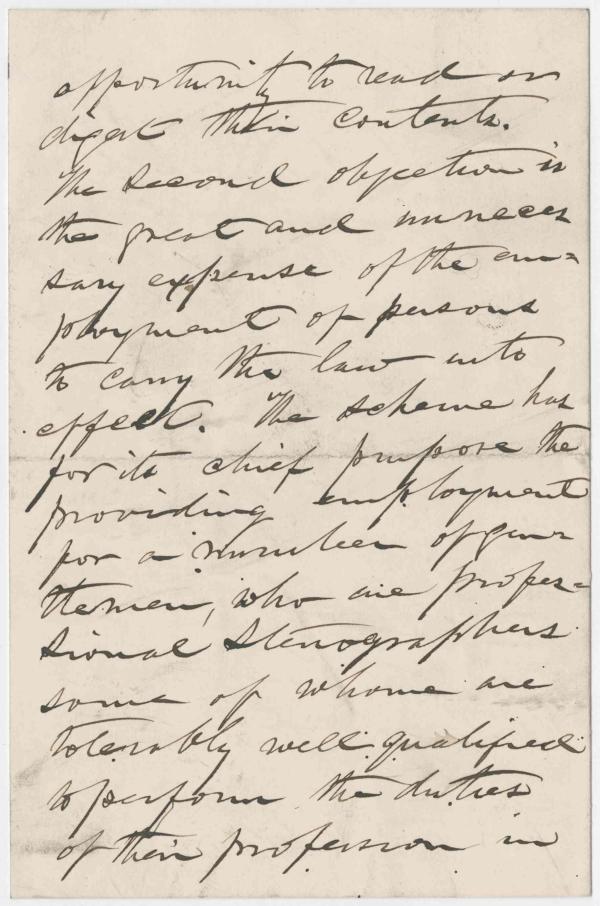 opportunity to read or
digest their contents.
The second objection is
the great and unneces
sary expense of the em=
ployment of persons
to carry the law into
effect. The scheme has
for its chief purpose the
providing employment
for a number of gen=
tlemen, who are profes=
sional stenographers
some of whome are
tolerably well qualified
to perform the duties
of their profession in